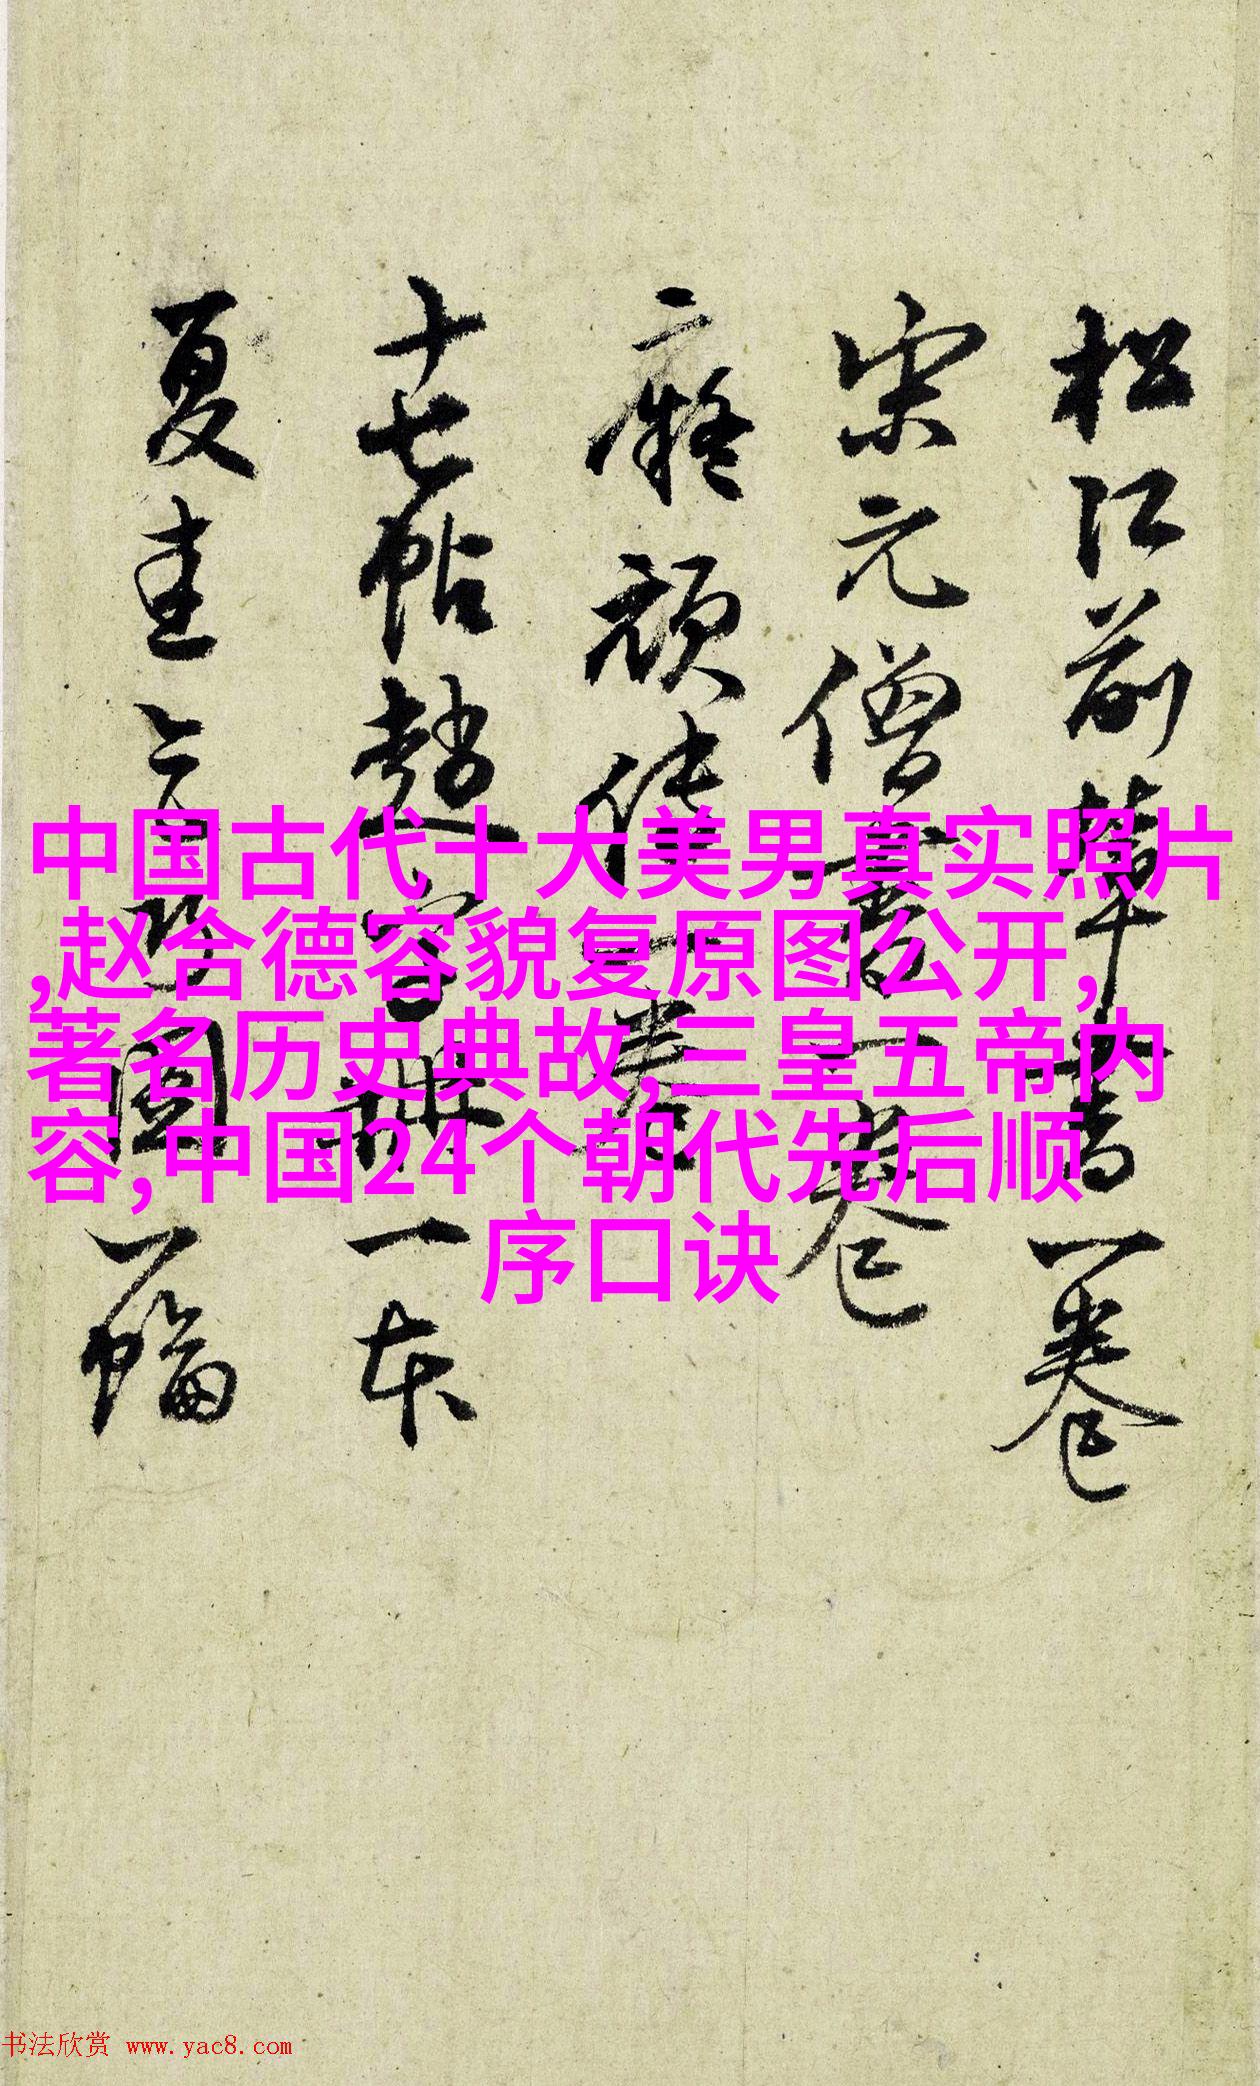 松江前輩書一卷
宋元僧書一卷
二癡頑仙一卷
十七帖趙容册一本
夏圭山水圖一幅
中国古代十大美男真实照片
,赵合德容貌复原图公开,
著名历史典故,三皇五帝内
容,中国24个朝代先后顺
序口诀
书法欣赏 www.yac8.com